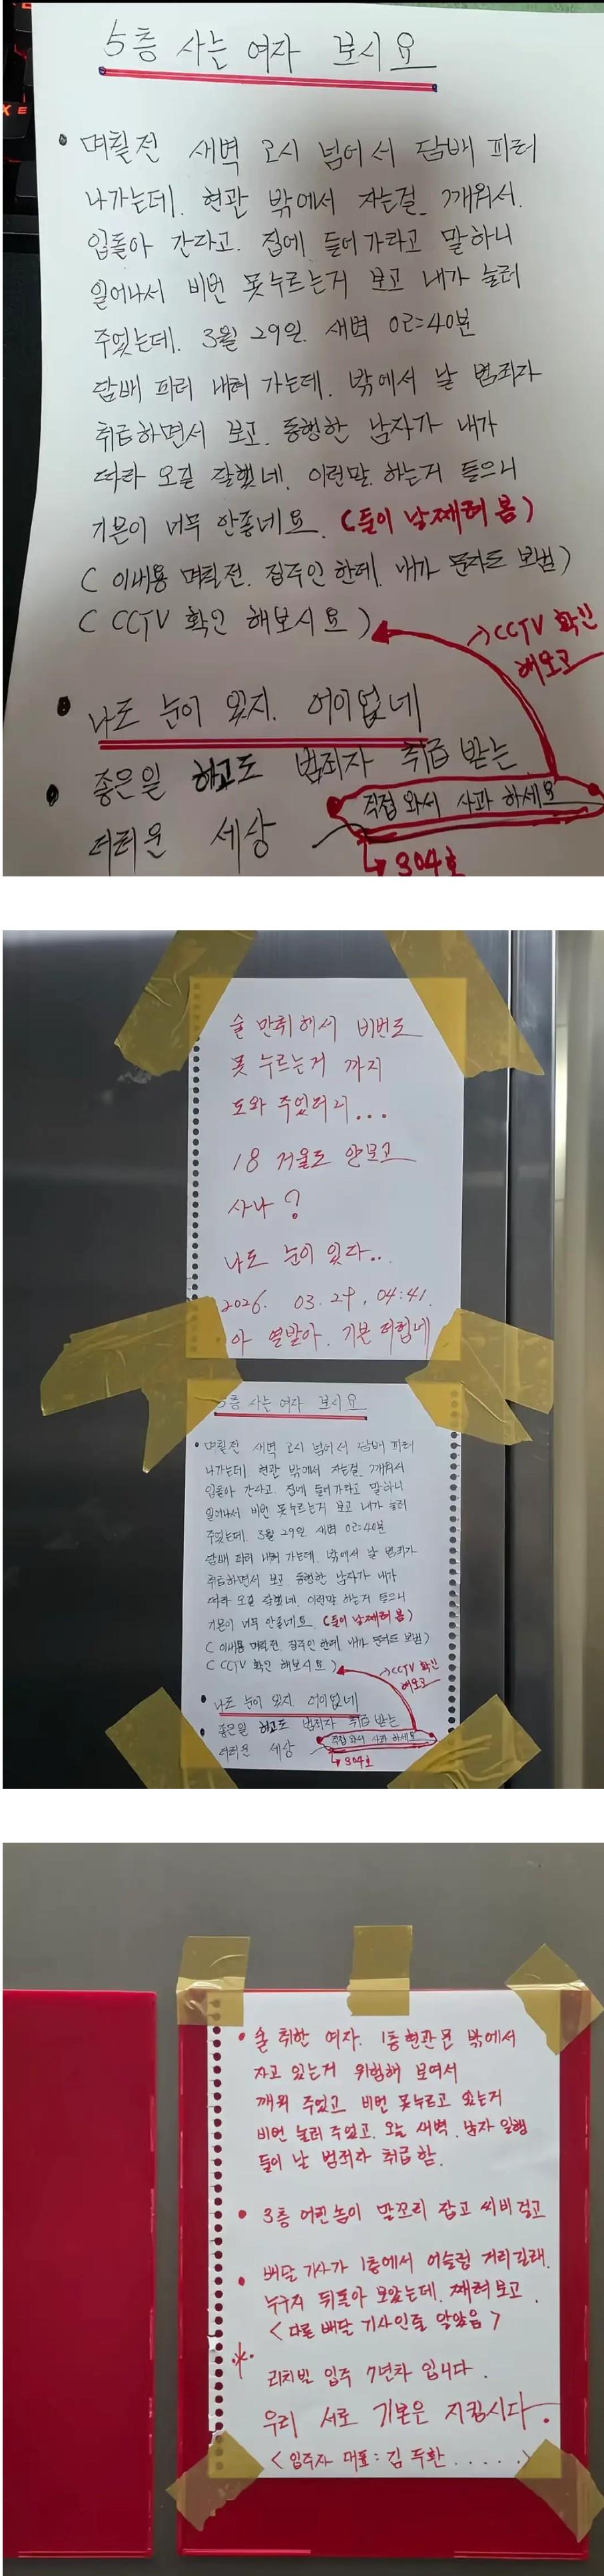 5층 사는 여자 보시요
• 며칠전 새벽 2시 넘어서 담배 피러
나가는데. 현관 밖에서 자는걸. 깨워서.
입돌아 간다고. 집에 들어가라고 말하니
일어나서 비번 못누르는거 보고 내가 눌러
주었는데. 3월 29일. 새벽 02:40분
담배 피러 내려 가는데. 밖에서 날 범죄자
취급하면서 보고. 동행한 남자가 내가
따라 오길 잘했네. 이런말. 하는거 들으니
기분이 너무 안좋네요. (둘이 날째려 봄)
( 이내용 며칠전. 집주인 한테. 내가 문자도 보냄)
( CCTV 확인 해보시요 )
→CCTV 확인
해보고
• 나도 눈이 있지. 어이없네
• 좋은일 하고도 범죄자 취급 받는
직접 와서 사과 하세요
더러운 세상
↳ 304호
술 만취해서 비번도
못 누르는거 까지
도와 주었더니...
18 거울도 안보고
사나?
나도 눈이 있다..
2026. 03. 29, 04:41.
아 열받아. 기분 더럽네
5층 사는 여자 보시요
• 며칠전 새벽 2시 넘어서 담배 피러
나가는데. 현관 밖에서 자는걸. 깨워서
입돌아 간다고. 집에 들어가라고 말하니
일어나서 비번 못누르는거 보고 내가 눌러
주었는데. 3월 29일. 새벽 02:40분
담배 피러 내려 가는데. 밖에서 날 범죄자
취급하면서 보고. 동행한 남자가 내가
따라 오길 잘했네. 이런말 하는거 들으니
기분이 너무 안좋네요. (둘이 날째려 봄)
( 이내용 며칠전. 집주인 한테. 내가 문자도 보냄)
( CCTV 확인 해보시요 )
→CCTV 확인
해보고
• 나도 눈이 있지. 어이없네
• 좋은일 하고도 범죄자 취급 받는
직접 와서 사과 하세요
더러운 세상
↳ 304호
• 술 취한 여자. 1층현관문 밖에서
자고 있는거 위험해 보여서
깨워 주었고 비번 못누르고 있는거
비번 눌러 주었고. 오늘 새벽. 남자 일행
들이 날 범죄자 취급 함.
• 3층 어린놈이 말꼬리 잡고 씨비 걸고
• 배달 기사가 1층에서 어슬렁 거리길래.
누구지 뒤돌아 보았는데. 째려보고.
< 다른 배달 기사인줄 알았음 >
※ 리치빌 입주 7년차 입니다.
우리 서로 기본은 지킵시다.
< 입주자 대표 : 김두환 ..... >